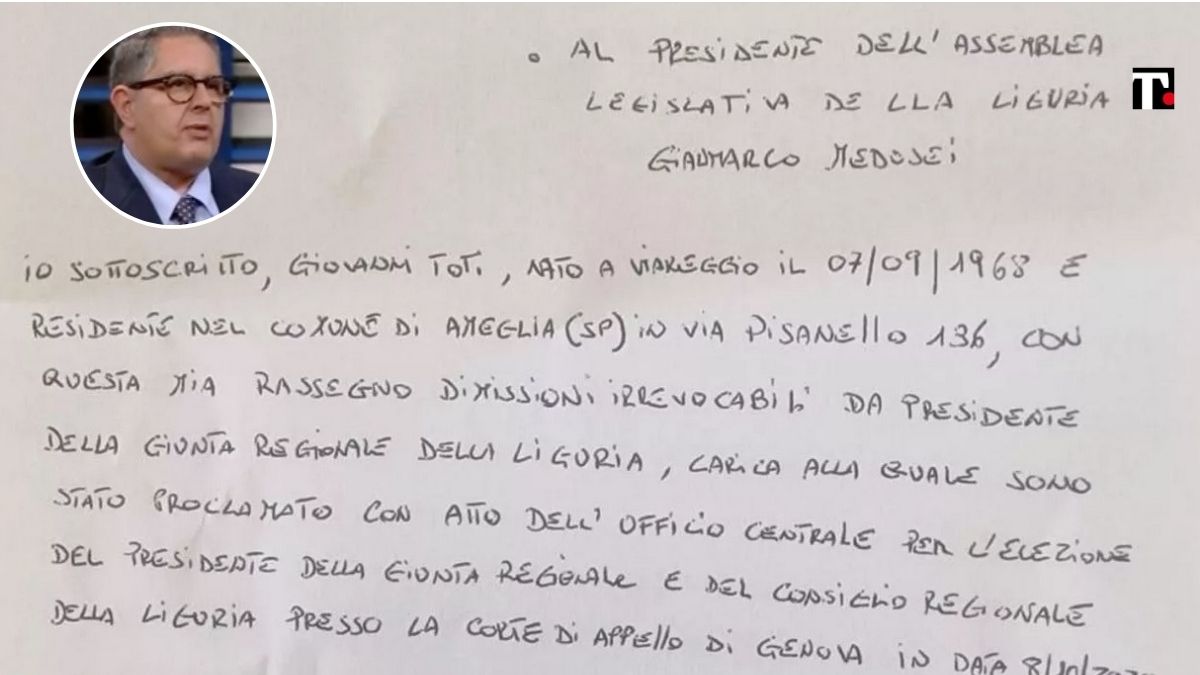 AL PRESIDENTE DELL'ASSEMBLEA
LEGISLATIVA DELLA LIGURIA
GIANMARCO MEDUSEI
T.
IO SOTTOSCRITTO, GIOVANNI TOTI, NATO A VIAREGGIO IL 07/09/1968 E
RESIDENTE NEL COMUNE DI AMEGLIA (SP) IN VIA PISANELLO 136, CON
QUESTA MIA RASSEGNO DIMISSIONI IRREVOCABILI DA PRESIDENTE
DELLA GIUNTA REGIONALE DELLA LIGURIA, CARICA ALLA QUALE SONO
STATO PROCLAMATO CON ATTO DELL'UFFICIO CENTRALE PER L'ELEZIONE
DEL PRESIDENTE DELLA GIUNTA REGIONALE E DEL CONSIGLIO REGIONALE
DELLA LIGURIA PRESSO LA CORTE DI APPELLO DI GENOVA IN DATA